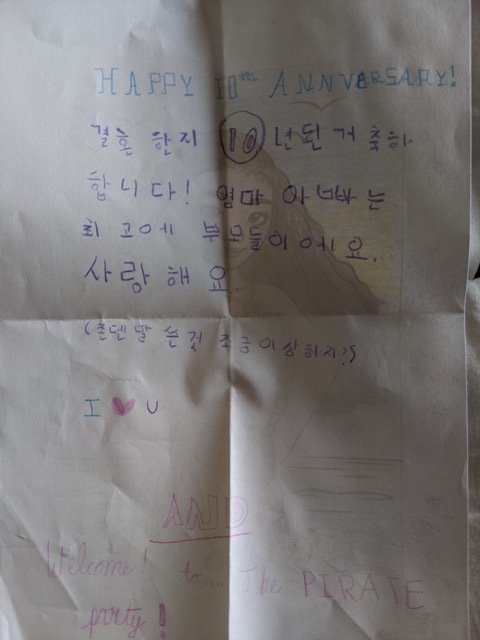 HAPPY 10th ANNVERSARY!
결혼 한지 10 년된거 축하
합니다! 엄마 아빠는
최고에 부모들이에요.
사랑해요.
(존덴말 쓴것 조금이상하지?)
I ♥ U
AND
Welcome! to... The PIRATE
party!